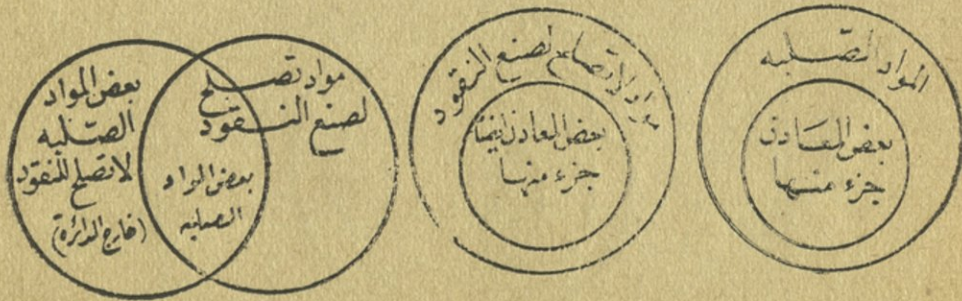 المواد الصّلبه
بعض المعادن
جزء منها
مواد لا تصلح لصنع النقود
بعض المعادن ايضا
جزء منها
مواد تصلح
لصنع النقود
بعض المواد
الصلبه
بعض المواد
الصّلبه
لا تصلح للنقود
(خارج الدائرة)